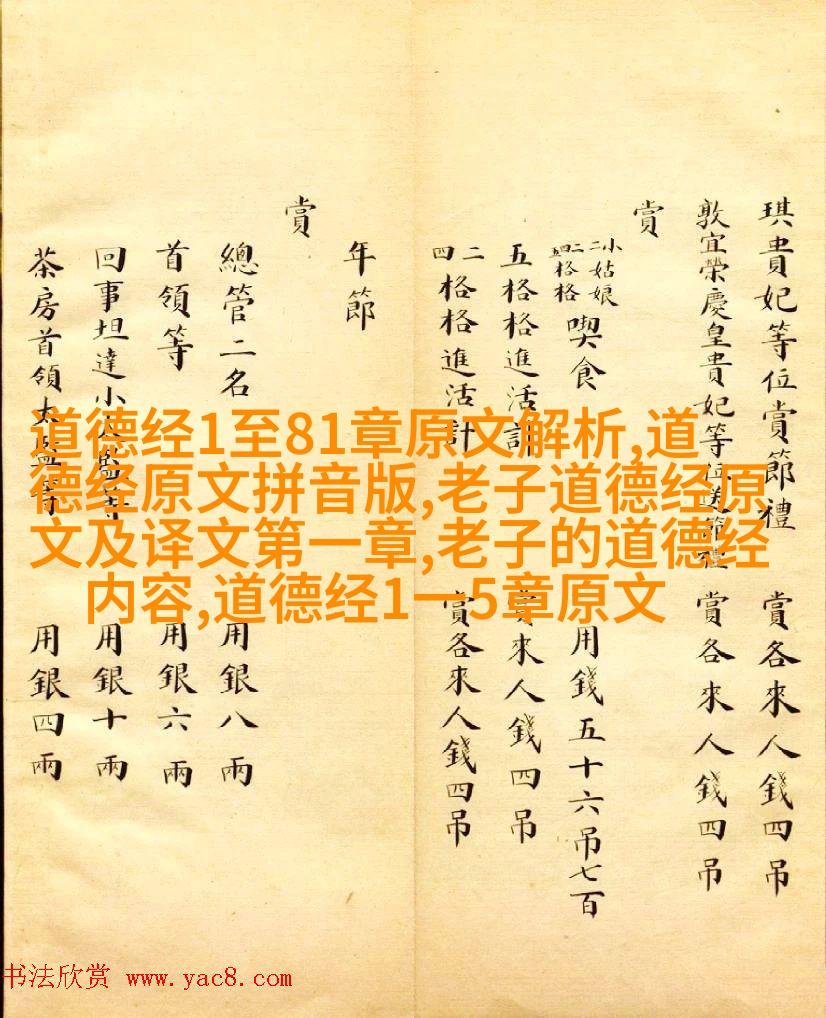 琪貴妃等位賞節禮 賞各來人錢四吊
敦宜榮慶皇貴妃等位送節禮 賞各來人錢四吊
賞
小姑娘 格格 喫食 用錢五十六吊七百
五格格進活計 賞來人錢四吊
二四格格進活計 賞各來人錢四吊
年節
賞
總管二名 用銀八兩
首領等 用銀六兩
回事坦達小太監等 用銀十兩
茶房首領太監等 用銀四兩
道德经1至81章原文解析,道
德经原文拼音版,老子道德经原
文及译文第一章,老子的道德经
内容,道德经1一5章原文
书法欣赏 www.yac8.com